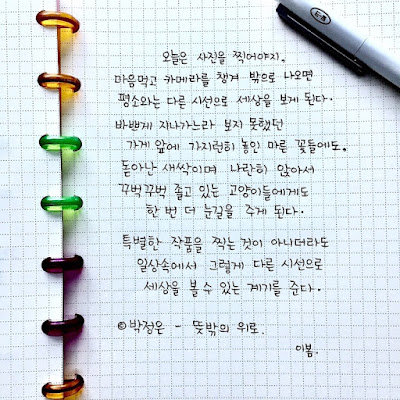 오늘은 사진을 찍어야지.
마음먹고 카메라를 챙겨 밖으로 나오면
평소와는 다른 시선으로 세상을 보게 된다.
바쁘게 지나가느라 보지 못했던
가게 앞에 가지런히 놓인 마른 꽃들에도.
돋아난 새싹이며 나란히 앉아서
꾸벅꾸벅 졸고 있는 고양이들에게도
한 번 더 눈길을 주게 된다.
특별한 작품을 찍는 것이 아니더라도
일상속에서 그렇게 다른 시선으로
세상을 볼 수 있는 계기를 준다.
©박정은 - 뜻밖의 위로.
이봄.